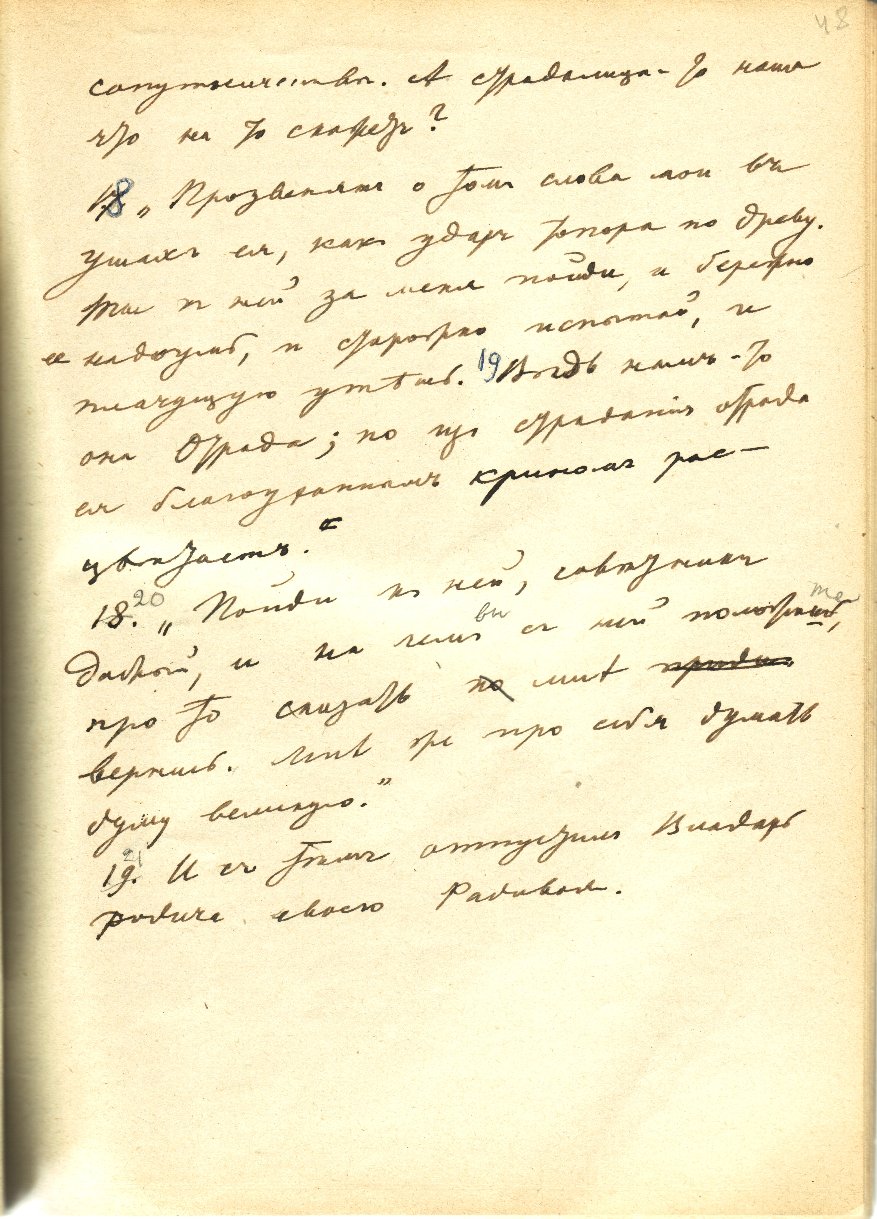 48
сопутничества. А страдалица-то наша
что на то скажетъ?
18 „Прозвенятъ о томъ слова мои въ
ушахъ ея, какъ ударъ топора по древу.
Ты къ ней за меня пойди, и бережно
ее надоумь, и сторожко испытай, и
плачущую утѣшь. 19 Вѣдь намъ-то
она Отрада; но изъ страданія отрада
ея благоуханнымъ криномъ рас-
цвѣтаетъ.“
18. 20 „Пойди къ ней, совѣтникъ
добрый, и на чемъ вы съ ней положите,
про то сказать ко мнѣ приди
вернись. Мнѣ же про себя думать
думу великую.”
19. 21 И съ тѣмъ отпустилъ Владарь
родича своего Радивоя.